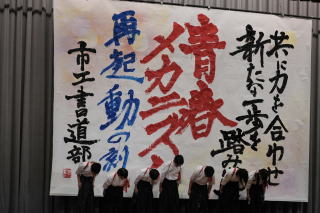 共に力を合わせ
新たな一歩を踏み
青春
メカニズム
再起動の刻
市工書道部